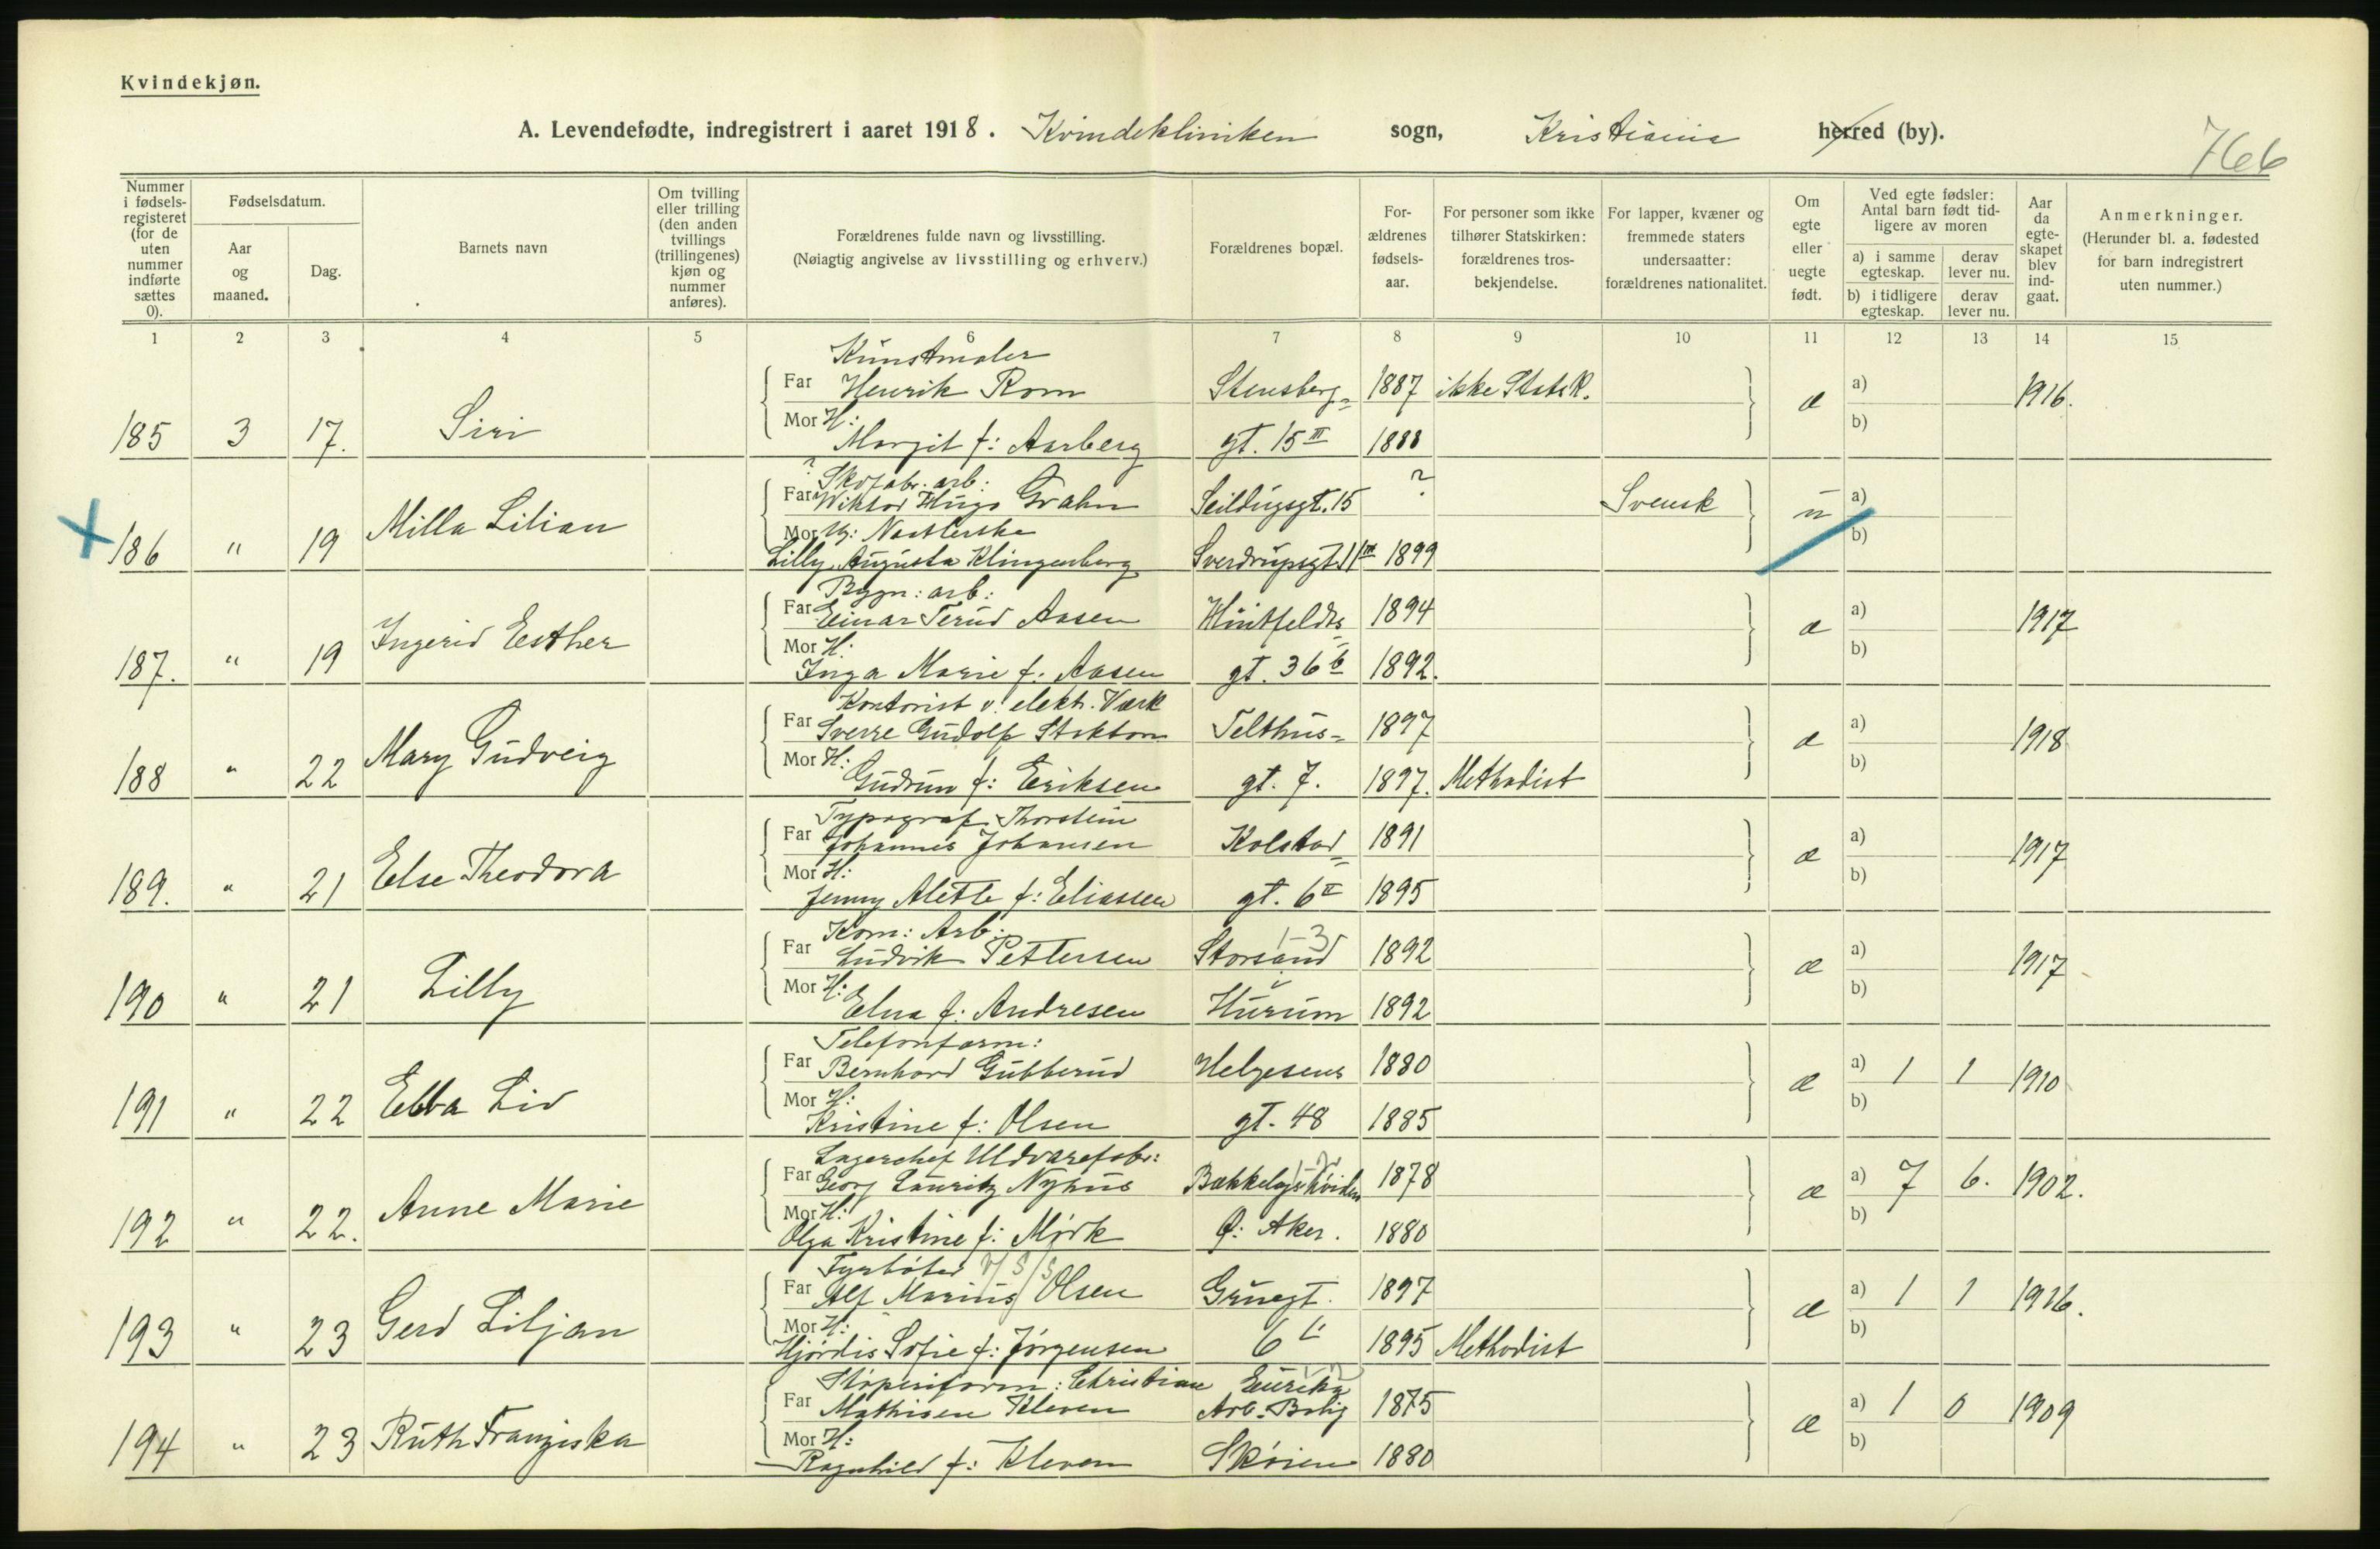 Kvindekjøn.
A. Levendefødte, indregistrert i aaret 1918. Kvindekliniken sogn, Kristiania herred (by).
766
Nummer i fødselsregisteret (for de uten nummer indførte sættes 0).
Fødselsdatum.
Aar og maaned.
Dag.
Barnets navn
Om tvilling eller trilling (den anden tvillings (trillingenes) kjøn og nummer anføres).
Forældrenes fulde navn og livsstilling.
(Nøiagtig angivelse av livsstilling og erhverv.)
Forældrenes bopæl.
For-ældrenes fødsels-aar.
For personer som ikke tilhører Statskirken: forældrenes tros-bekjendelse.
For lapper, kvæner og fremmede staters undersaatter: forældrenes nationalitet.
Om egte eller uegte født.
Ved egte fødsler: Antal barn født tid-ligere av moren
a) i samme egteskap. derav lever nu.
b) i tidligere egteskap. derav lever nu.
Aar da egte-skapet blev ind-gaat.
Anmerkninger.
(Herunder bl. a. fødested for barn indregistrert uten nummer.)
1 2 3 4 5 6 7 8 9 10 11 12 13 14 15
Kunstmaler
Far Henrik Rom Stensberg= 1887 ikke StatsK. æ a) 1916.
185 3 17. Siri Mor H: b)
Margit f: Aarberg gt. 15 III 1888
? Skofabr. arb:
Far Wiktor Hugo Grahn Seildugsgt. 15 ? Svensk u a)
X 186 " 19 Milla Lilian Mor Ug: b)
Lilly Augusta Klingenberg Sverdrupsgt. 11 III 1899
Bygn: arb:
Far Einar Terud Aasen Huitfeldts 1894 æ a) 1917
187. " 19 Ingerid Esther Mor H: b)
Inga Marie f: Aasen gt. 36 b 1892.
Kontorist v. elektr. Værk
Far Sverre Gudolf Stokton Telthus= 1897 æ a) 1918
188 " 22 Mary Gudveig Mor H: b)
Gudrun f: Eriksen gt. 7. 1897. Methodist
Typograf Thorstein
Far Johannes Johansen Kolstad= 1891 æ a) 1917
189. " 21 Else Theodora Mor H: b)
Jenny Alette f: Eliassen gt. 6 II 1895
Kom: Arb: 1-3
Far Ludvik Pettersen Storsand 1892 æ a) 1917
190 " 21 Lilly Mor H: b)
Elna f: Andresen Hurum 1892
Telefonform:
Far Bernhard Gubberud Helgesens 1880 æ a) 1 1 1910
191 " 22 Ebba Liv Mor H: b)
Kristine f: Olsen gt. 48 1885
Lagerchef Uldvarefabr:
Far Georg Lauritz Nyhus 1878 æ a) 7 6. 1902.
192 " 22. Anne Marie Mor H: b)
Olga Kristine f: Mørk Ø: Aker. 1880
Fyrbøter
Far Alf Marius Olsen Grünegt. 1897 æ a) 1 1 1916.
193 " 23 Gerd Liljan Mor H: b)
Hjørdis Sofie f: Jørgensen 6 1895 Methodist
Støperiform: Christian Eureka
Far Mathisen Kleven Arb. Bolig 1875 æ a) 1 0 1909
194 " 23 Ruth Franziska Mor H: b)
Ragnhild f: Kleven Skøien 1880